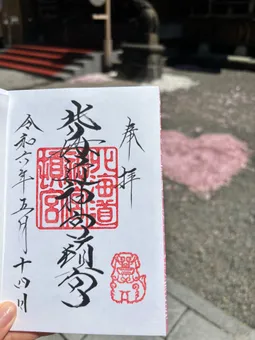 奉拝
北海道神宮頓宮
北海道
頓宮
令和六年五月十四日